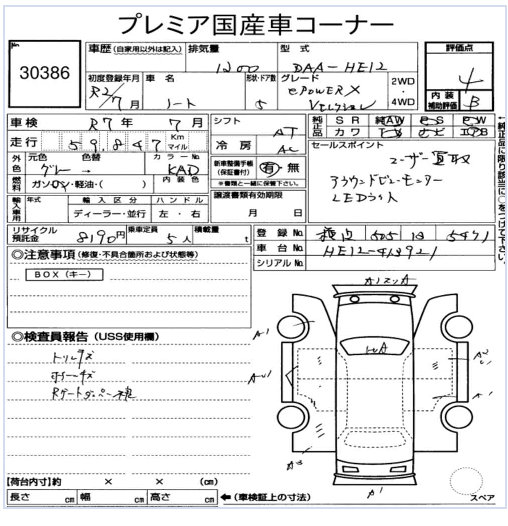 プレミア国産車コーナー
No
30386
車歴 (自家用以外は記入) 排気量 型式 評価点
1200 DAA-HE12 4
初度登録年月 車名 形状・ドア数 グレード 2WD・4WD 内装補助評価 B
R2/7月 ノート 5 ePOWER X Vセレクション
車検 R7年7月 シフト AT 純正品 SR 純AW PS PW
カワ
走行 59,847 Km マイル 冷房 AC セールスポイント
外色 元色 色替 カラーNo. 新車整備手帳(保証書付) 有・無 ユーザー買取
グレー KAD ※書類と一緒に保管下さい。 アラウンドビューモニター
燃料 ガソリン・軽油・( ) 内装色 譲渡書類有効期限 LEDライト
輸入車用 年式 輸入区分 ハンドル 月 日
ディーラー・並行 左・右
←純正品に限り該当に○をつけて下さい。
リサイクル預託金 8190円 乗車定員 5人 積載量 t 登録No. 505 5471
車台No. HE12-413921
シリアルNo.
◎注意事項 (修復・不具合箇所および状態等)
BOX (キー)
A1
A1
A1
A1
WA
◎検査員報告 (USS使用欄)
トリムキズ
ホイールキズ
【荷台内寸】約 × × (cm)
長さ cm 幅 cm 高さ cm ←(車検証上の寸法)
スペア